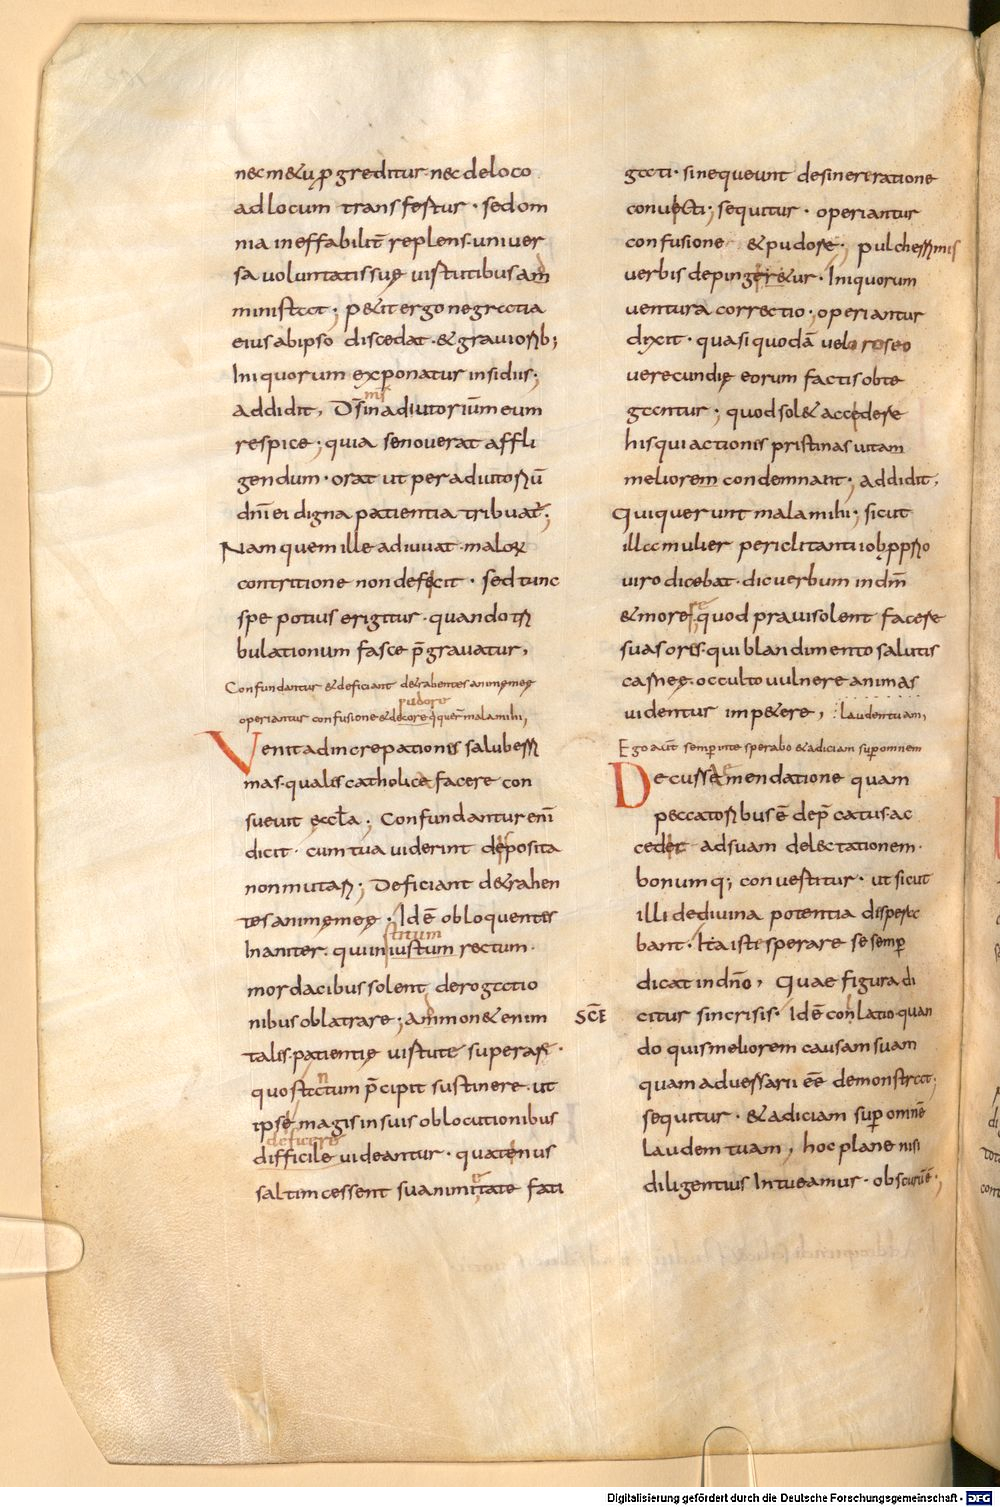 nec m&u p̱greditur· nec deloco
adlocum transfertur· sedom
nia ineffabilit̄ replens· univer
sa voluntatissuę virtutibus am
ministrat; p&it ergo negratia
eius abipso discedat· & graviorib;
Iniquorum exponatur insidiis;
addidit, Dn̄s inadiutoriūm eum
respice; quia se noverat affli
gendum· orat ut per adiutoriū
dn̄i ei digna patientia tribuat̄;
Nam quem ille adiuvat· malorum
contritione non deficit· sed tunc
spe potius erigitur· quando tri
bulationum fasce p̄gravatur,
Confundantur & deficiant d&rahentes animę meę
pudore
operiantur confusione & decore q̄ quer̄ mala mihi,
Venit ad increpationis saluberri
mas· qualis catholice facere con
suevit ęccl̄a; Confundantur eni̅
dicit· cum tua viderint deposita
non mutari; Deficiant d&rahen
tes animę meę· Idē obloquentes
Inaniter· qui iniustum rectum·
mordacibus solent derogatio
nibus oblatrare; ammon& enim
talis patientię virtute superari·
quo statum p̄cipit sustinere· ut
ipse magis in suis oblocutionibus
deficere
difficile videantur· quatenus
saltim cessent sua nimi&ate fati
gati· sinequeunt desinere ratione
convicti; sequitur· operiantur
confusione & pudore; pulcherrimis
verbis deping&ur· Iniquorum
ventura correctio; operiantur
dixit· quasi quodā velo roseo
verecundię eorum factis obte
gantur; quod sol& accedere
his qui actionis pristinas vitam
meliorem condemnant; addidit,
Qui querunt mala mihi; sicut
illa mulier periclitanti iob pp̄rio
viro dicebat· dic verbum in dn̄m
& morere quod pravi solent facere
suasoris· qui blandimento salutis
carnęę· occulto vulnere animas
videntur imp&ere, laudem tuam,
Ego aut̄ semper in te sperabo & adiciam super omnem
De cusse emendatione quam
peccatoribus ē dep̄catus· ac
cedet ad suam delectationem·
bonumq; convertitur· ut sicut
illi de divina potentia dispera
bant· Ita iste sperare se semper
dicat in dn̄o, Quae figura di
SC̄E
citur sincrisis· Idē conlatio· quan
do quis meliorem causam suam
quam adversarii eē demonstrat;
sequitur· & adiciam super omnē
laudem tuam, hoc plane nisi
diligentius Intueamur· obscurū ē;
Digitalisierung gefördert durch die Deutsche Forschungsgemeinschaft - DFG